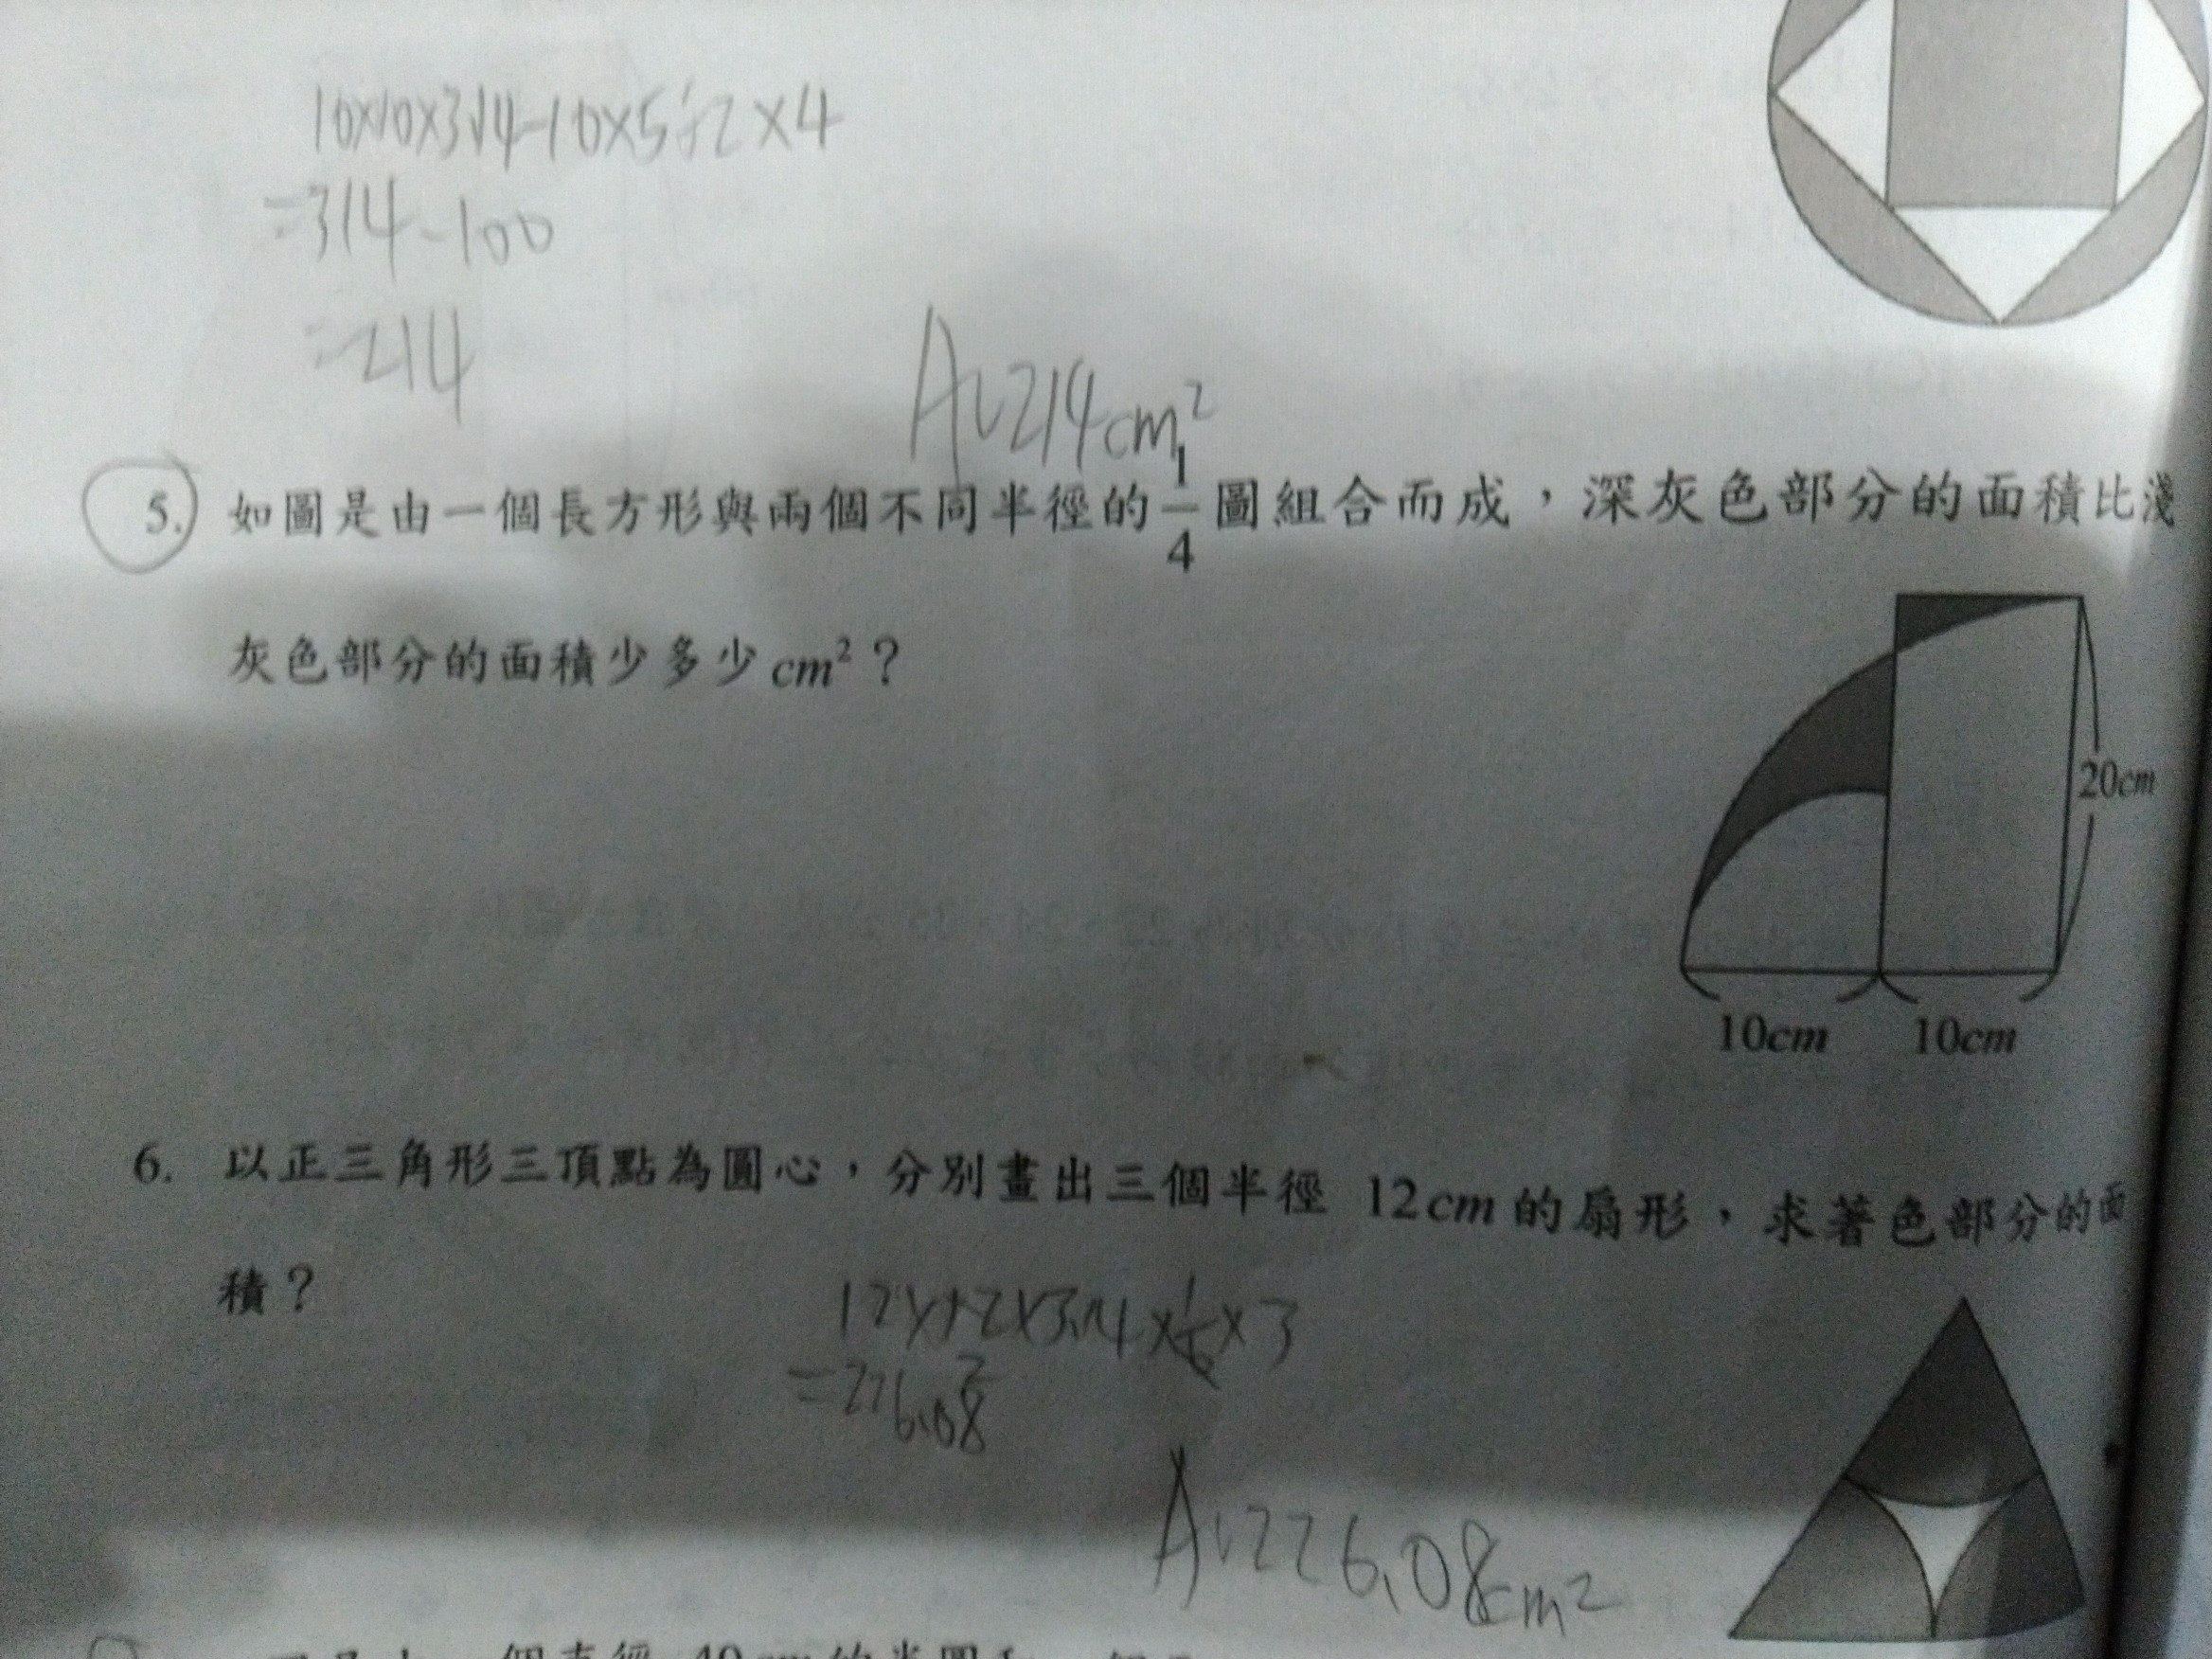 10×10×3.14-10×5÷2×4
=314-100
=214
A:214cm²
5. 如圖是由一個長方形與兩個不同半徑的1/4圓組合而成，深灰色部分的面積比淺
灰色部分的面積少多少cm²？
20cm
10cm 10cm
6. 以正三角形三頂點為圓心，分別畫出三個半徑 12cm的扇形，求著色部分的面
積？
12×12×3.14×1/6×3
=226.08
A:226.08cm²